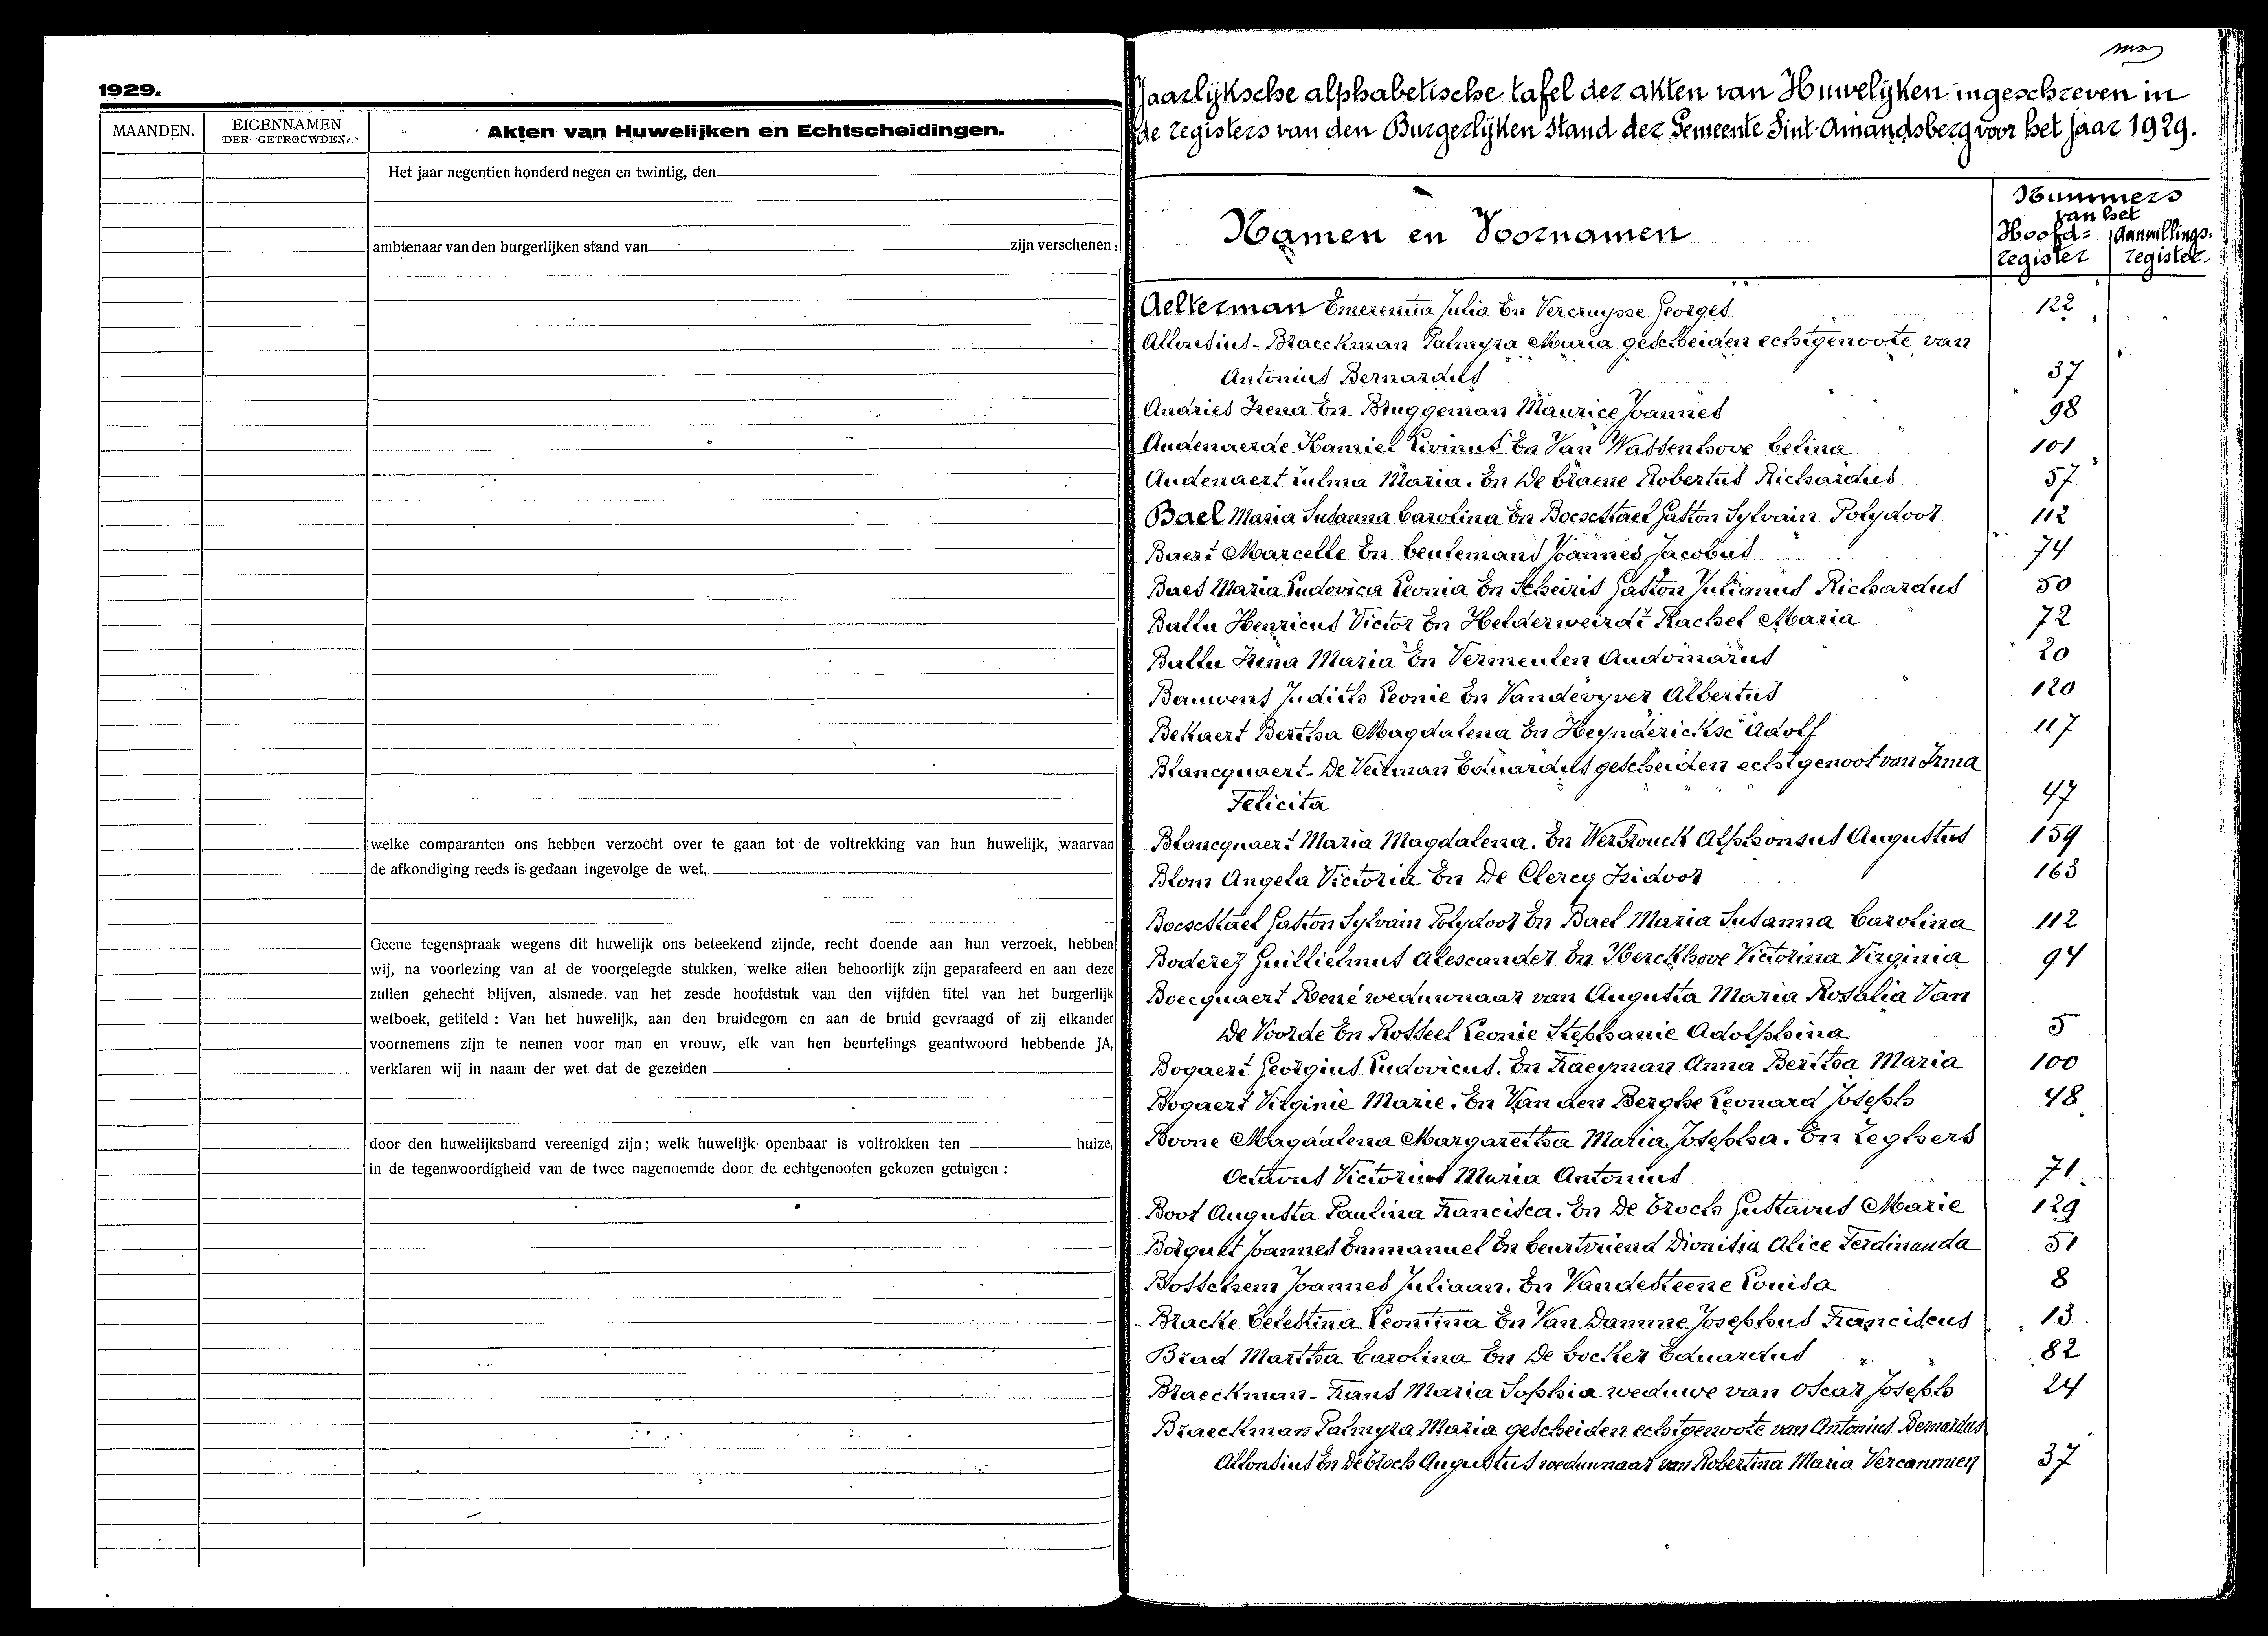 1929.
MAANDEN.
EIGENNAMEN
DER GETROUWDEN.
Akten van Huwelijken en Echtscheidingen.
Het jaar negentien honderd negen en twintig, den
ambtenaar van den burgerlijken stand van zijn verschenen :
welke comparanten ons hebben verzocht over te gaan tot de voltrekking van hun huwelijk, waarvan
de afkondiging reeds is gedaan ingevolge de wet,
Geene tegenspraak wegens dit huwelijk ons beteekend zijnde, recht doende aan hun verzoek, hebben
wij, na voorlezing van al de voorgelegde stukken, welke allen behoorlijk zijn geparafeerd en aan deze
zullen gehecht blijven, alsmede van het zesde hoofdstuk van den vijfden titel van het burgerlijk
wetboek, getiteld : Van het huwelijk, aan den bruidegom en aan de bruid gevraagd of zij elkander
voornemens zijn te nemen voor man en vrouw, elk van hen beurtelings geantwoord hebbende JA,
verklaren wij in naam der wet dat de gezeiden
door den huwelijksband vereenigd zijn; welk huwelijk openbaar is voltrokken ten huize,
in de tegenwoordigheid van de twee nagenoemde door de echtgenooten gekozen getuigen :
Jaarlijksche alphabetische tafel der akten van Huwelijken ingeschreven in
de registers van den Burgerlijken Stand der Gemeente Sint-Amandsberg voor het jaar 1929.
Namen en Voornamen
Nummers
van het
Hoofd= Aanvullings=
register register
Aelterman Emerentia Julia En Vercruysse Georges 122
Allonsius-Braeckman Palmyra Maria gescheiden echtgenoote van
Antonius Bernardus 37
Andries Irena En Bruggeman Maurice Joannes 98
Audenaerde Kamiel Livinus En Van Wassenhove Celina 101
Audenaert Zulma Maria. En De Craene Robertus Richardus 57
Bael Maria Susanna Carolina En Boeschtael Gaston Sylvain Polydoor 112
Baert Marcelle En Ceulemans Joannes Jacobus 74
Baes Maria Ludovica Leonia En Scheiris Gaston Julianus Richardus 50
Ballu Henricus Victor En Helderweirdt Rachel Maria 72
Ballu Irena Maria En Vermeulen Audomarus 20
Bauwens Judith Leonie En Vandevyver Albertus 120
Bekaert Bertha Magdalena En Heynderickse Adolf 117
Blancquaert-De Veirman Eduardus gescheiden echtgenoot van Irma
Felicita 47
Blancquaert Maria Magdalena. En Werbrouck Alphonsus Augustus 159
Blom Angela Victoria En De Clercq Isidoor 163
Boeschtael Gaston Sylvain Polydoor En Bael Maria Susanna Carolina 112
Boderez Guillielmus Alescander En Kerckhove Victorina Virginia 94
Boecquaert René weduwnaar van Augusta Maria Rosalia Van
De Voorde En Rosseel Leonie Stephanie Adolphina 5
Bogaert Georgius Ludovicus. En Haeyman Anna Bertha Maria 100
Bogaert Virginie Marie. En Van den Berghe Leonard Joseph 48
Boone Magdalena Margaretha Maria Josepha. En Zeghers
Octavus Victorius Maria Antonius 71
Boot Augusta Paulina Francisca. En De Groch Gustavus Marie 129
Borquet Joannes Emmanuel En Ceurtvriend Dionisia Alice Ferdinanda 51
Bosschem Joannes Juliaan. En Vandesteene Louisa 8
Bracke Celestina Leontina En Van Damme Josephus Franciscus 13
Brad Martha Carolina En De Cocker Eduardus 82
Braeckman-Hans Maria Sophia weduwe van Oscar Joseph 24
Braeckman Palmyra Maria gescheiden echtgenoote van Antonius Bernardus
Allonsius En De Groch Augustus weduwnaar van Robertina Maria Vercammen 37